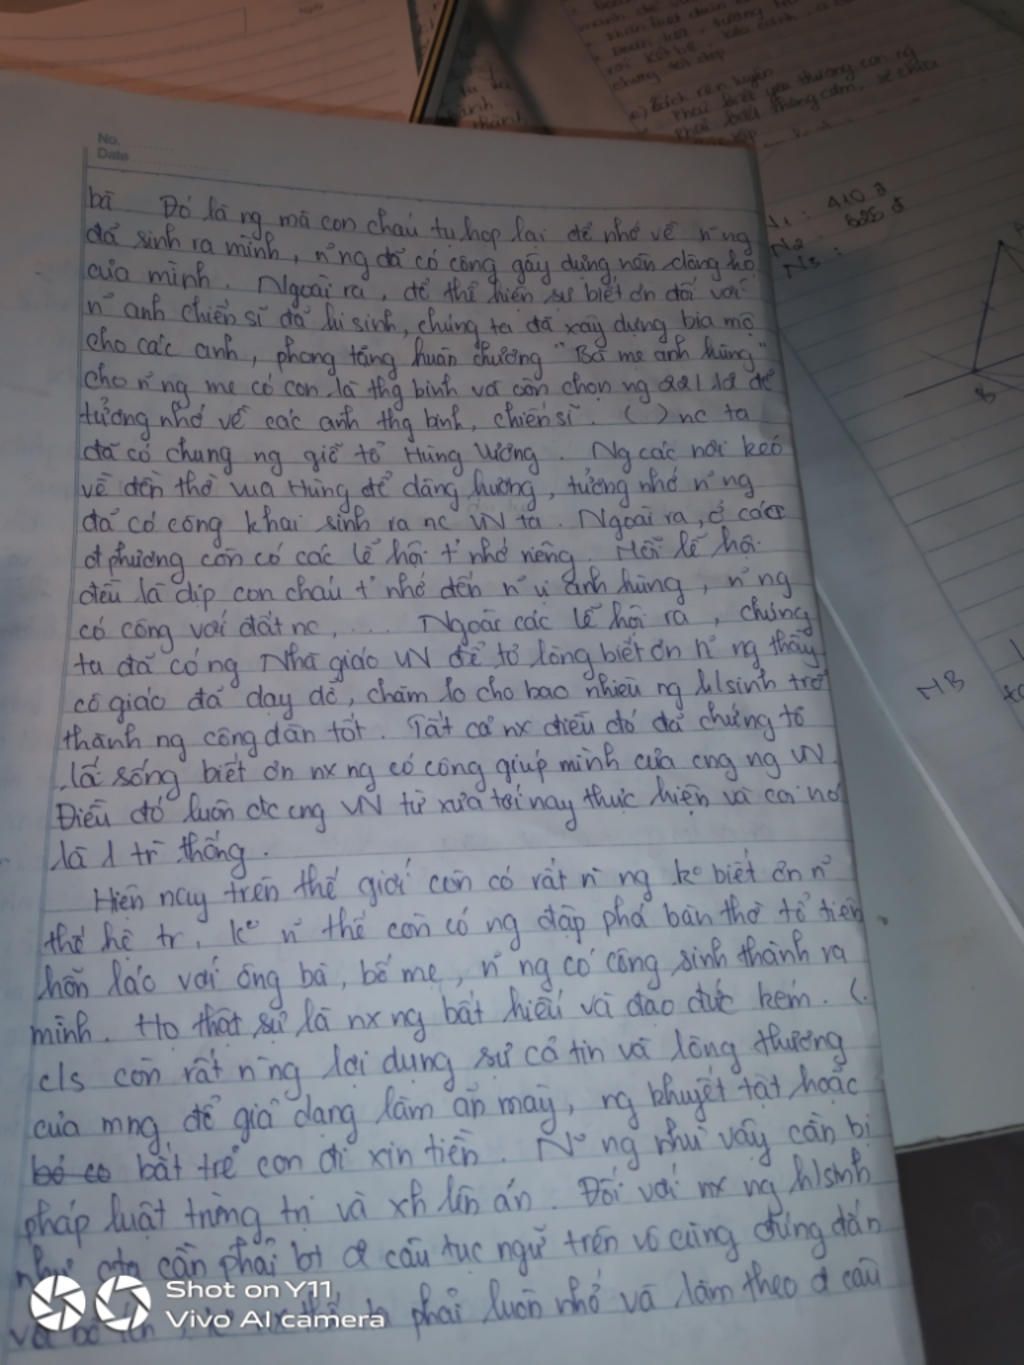 No.
Date
bà Đó là ng mà con cháu tụ họp lại để nhớ về n~ng
đã sinh ra mình, n~ng đã có công gây dựng nên dòng họ
của mình. Ngoài ra, để thể hiện sự biết ơn đối với
n~ anh chiến sĩ đã hi sinh, chúng ta đã xây dựng bia mộ
cho các anh, phong tặng huân chương "Bà mẹ anh hùng"
cho n~ng mẹ có con là thg binh và còn chọn ng 22/12 để
tưởng nhớ về các anh thg binh, chiến sĩ. ( ) nc ta
đã có chung ng giỗ tổ Hùng Vương. Ng các nơi kéo
về đền thờ vua Hùng để dâng hương, tưởng nhớ n~ng
đã có công khai sinh ra nc VN ta. Ngoài ra, ở các
đ phương còn có các lễ hội t' nhớ riêng. Mỗi lễ hội
đều là dịp con cháu t' nhớ đến n~ vị anh hùng, n~ng
có công với đất nc, ... Ngoài các lễ hội ra, chúng
ta đã có ng Nhà giáo VN để tỏ lòng biết ơn n~ng thầy
cô giáo đã dạy dỗ, chăm lo cho bao nhiêu ng h/sinh trở
thành ng công dân tốt. Tất cả nx điều đó đã chứng tỏ
là sống biết ơn nx ng có công giúp mình của cng ng VN.
Điều đó luôn đc cng VN từ xưa tới nay thực hiện và coi nó
là 1 tr` thống.
Hiện nay trên thế giới còn có rất n` ng k° biết ơn n~
thế hệ tr', k° n~ thế còn có ng đập phá bàn thờ tổ tiên
hỗn láo với ông bà, bố mẹ, n~ng có công sinh thành ra
mình. Họ thật sự là nx ng bất hiếu và đạo đức kém. (.
c/s còn rất n` ng lợi dụng sự cả tin và lòng thương
của mng để giả dạng làm ăn mày, ng khuyết tật hoặc
bắt trẻ con đi xin tiền. N~ ng như vậy cần bị
pháp luật trừng trị và xh lên án. Đối với nx ng h/sinh
như cta cần phải bt đc câu tục ngữ trên vô cùng đúng đắn
phải luôn nhớ và làm theo đ câu
Shot on Y11
Vivo AI camera
410
MB
B